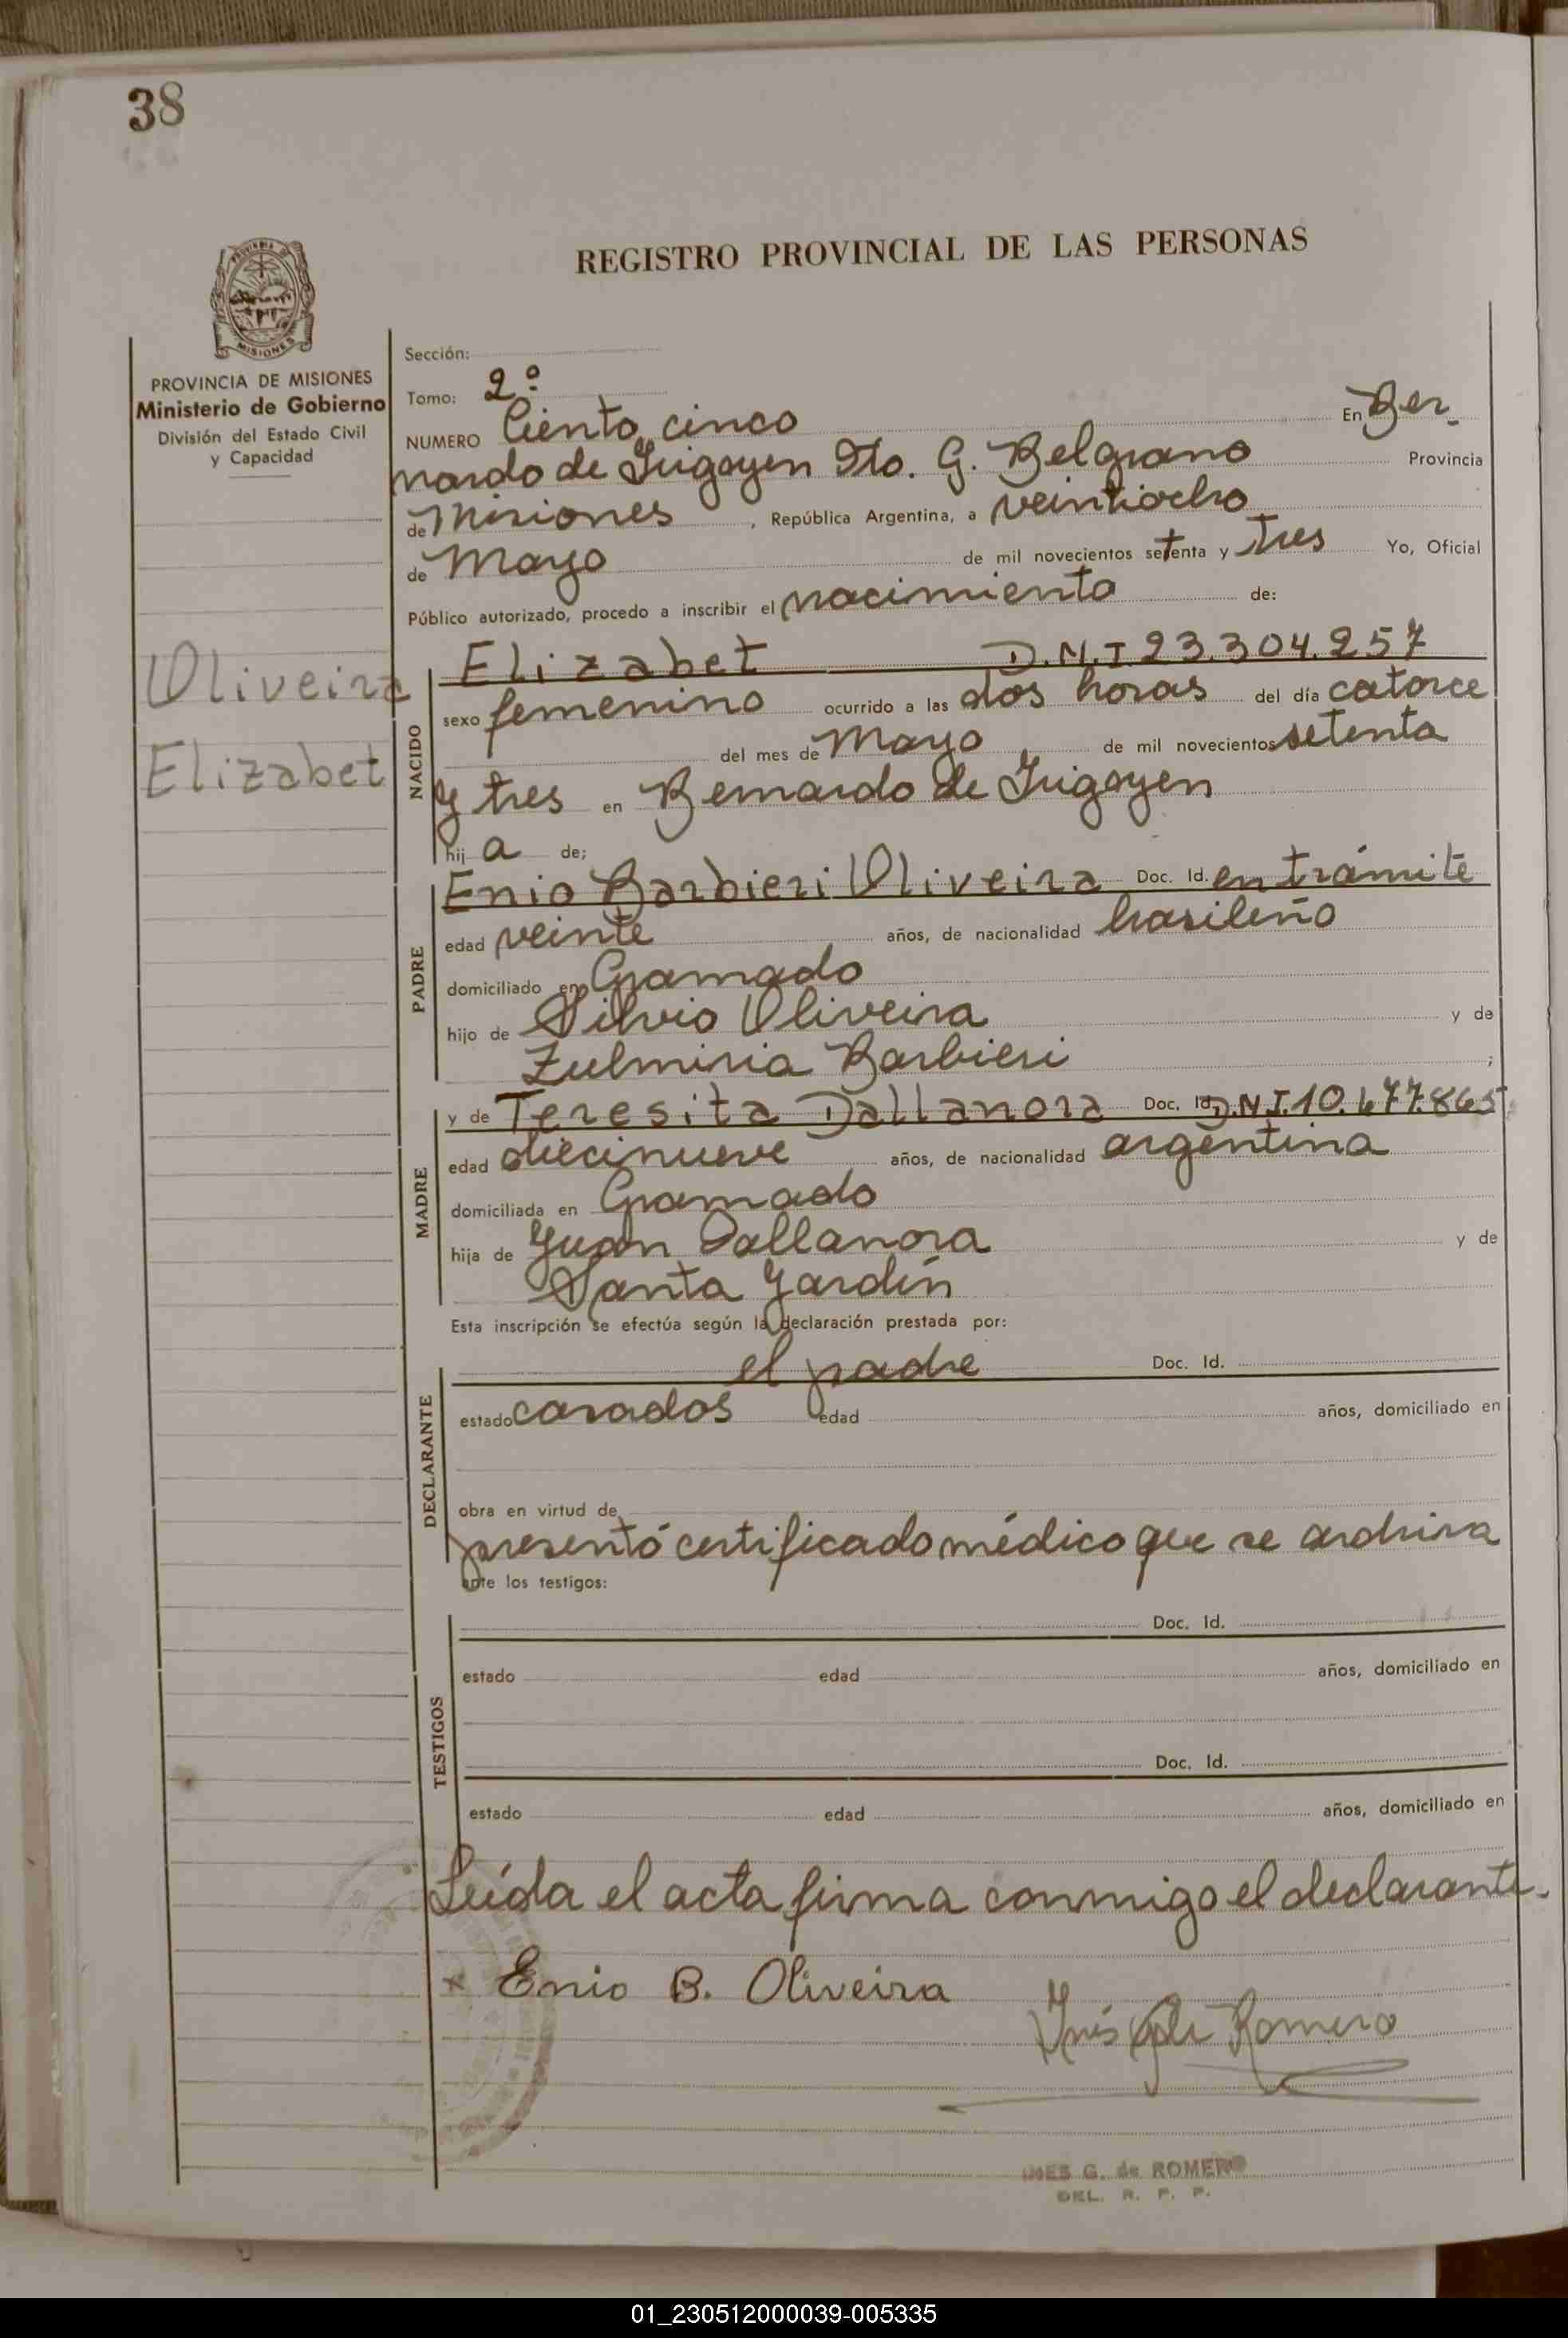 38
REGISTRO PROVINCIAL DE LAS PERSONAS
MISIONES
PROVINCIA DE MISIONES
Ministerio de Gobierno
División del Estado Civil
y Capacidad
Oliveira
Elizabet
Sección:
Tomo: 2º
NUMERO Ciento cinco En Ber-
nardo de Irigoyen Dto. G. Belgrano Provincia
de Misiones, República Argentina, a veintiocho
de Mayo de mil novecientos setenta y tres Yo, Oficial
Público autorizado, procedo a inscribir el nacimiento de:
NACIDO
Elizabet D.N.I 23.304.257
sexo femenino ocurrido a las dos horas del día catorce
del mes de Mayo de mil novecientos setenta
y tres en Bernardo de Irigoyen
hij a de;
PADRE
Enio Barbieri Oliveira Doc. Id. en trámite
edad veinte años, de nacionalidad brasileño
domiciliado en Gramado
hijo de Silvio Oliveira y de
Zulmiria Barbieri ;
MADRE
y de Teresita Dallanora Doc. Id. D.N.I. 10.677.865
edad diecinueve años, de nacionalidad argentina
domiciliada en Gramado
hija de Juan Dallanora y de
Santa Jardín
Esta inscripción se efectúa según la declaración prestada por:
DECLARANTE
el padre Doc. Id.
estado casados edad años, domiciliado en
obra en virtud de
presentó certificado médico que se archiva
ante los testigos:
TESTIGOS
Doc. Id.
estado edad años, domiciliado en
Doc. Id.
estado edad años, domiciliado en
Leída el acta firma conmigo el declarante.
x Enio B. Oliveira
Inés G de Romero
INES G. de ROMERO
DEL. R. P. P.
01_230512000039-005335